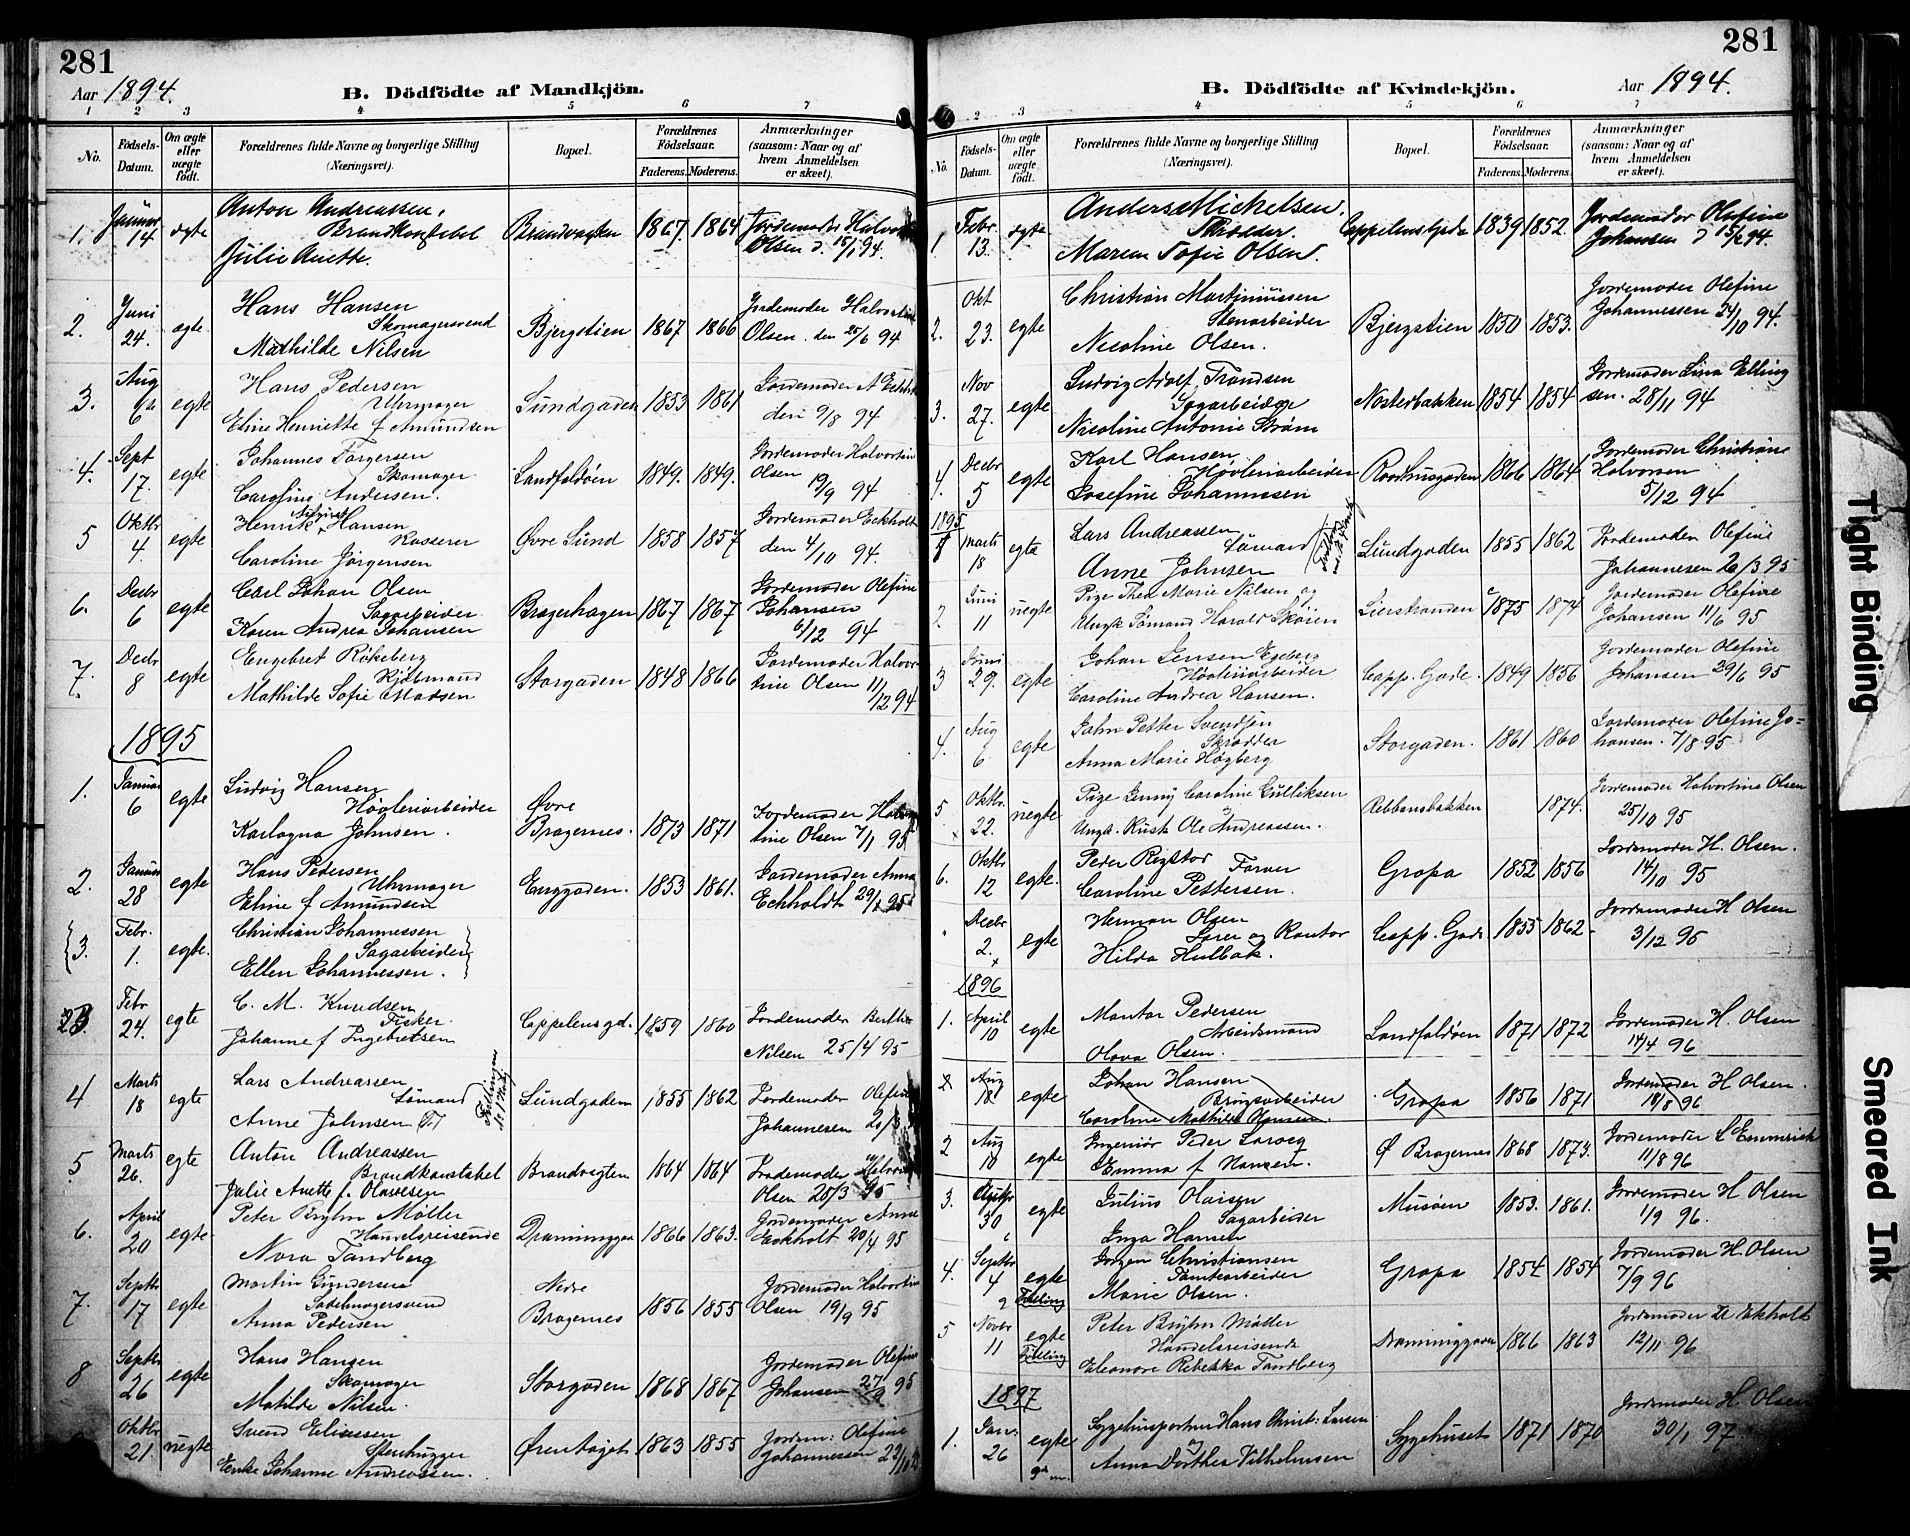 281
Aar 1894.
B. Dödfödte af Mandkjön.
1 2 3 4 5 6 7
No.
Fødsels-Datum.
Om ægte eller uægte født.
Forældrenes fulde Navne og borgerlige Stilling (Næringsvei).
Bopæl.
Forældrenes Födselsaar.
Faderens. Moderens.
Anmærkninger (saasom: Naar og af hvem Anmeldelsen er skeet).
1. Januar 14 ægte Anton Andreassen, Brandkonstabel Brandvagten 1867. 1864 Jordemoder Halvor
Julie Anette. Olsen d. 15/1 94.
2. Juni 24. ægte Hans Hansen Skomagersvend Bjergstien 1867 1866 Jordemoder Halvortine
Mathilde Nilsen Olsen. den 25/6 94
3. Aug egte Hans Pedersen Uhrmager Sundgaden 1853 1861 Jordemoder A Eckholt
Eline Henriette f Amundsen den 9/8 94
4. Sept 17. egte Johannes Torgersen Skomager Landfaldöen 1849. 1849. Jordemoder Halvortine
Caroline Andersen. Olsen 19/9 94
5 Oktbr 4 egte Henrik Hansen Kasserer Øvre Sund 1858 1857 Jordemoder Eckholt
Caroline Jörgensen den 4/10 94.
6. Decbr 6 egte Carl Johan Olsen Sagarbeider Bragerhagen 1867 1867 Jordemoder Olefine
Karen Andrea Johansen Johansen 6/12 94
7. Decbr 8 egte Engebret Rökeberg Kjöbmand Storgaden 1848 1866 Jordemoder Halvor
Mathilde Sofie Madsen tine Olsen 11/12 94
1895
1. Januar 6 egte Ludvig Hansen Høvleriarbeider Øvre Bragernes. 1873 1871 Jordemoder Halvor
Karlagna Johnsen. tine Olsen 7/1 95
2. Januar 28 egte Hans Pedersen Uhrmager Enggaden. 1853 1861. Jordemoder Anna
Eline f Amundsen Eckholdt 29/1 95
3. Febr. 1. egte. Christian Johannessen Sagarbeider
Ellen Johannessen.
3. Febr 24. egte C. M. Knudsen Fisker. Cappelensgd. 1859 1860 Jordemoder Berthe
Johanne f Ingebretsen Nilsen 25/4 95
4 Marts 18 egte Lars Andreassen Sömand Sundgaden 1855 1862 Jordemoder Olefine
Anne Johnsen Johannesen
5 Marts 26. egte Anton Andreassen Brandkonstabel Brandvagten 1864 1864 Jordemoder Halvor
Julie Anette f. Olavesen Olsen 28/3 95
6. April 20 egte Peter Bryhn Møller Handelsreisende Dramminggaa 1866 1863. Jordemoder Anna
Nora Tandberg Eckholt 20/4 95
7. Septbr 17 egte Martin Gundersen Sadelmagersvend Nedre Bragernes 1856 1855 Jordemoder Halvortine
Anna Pedersen Olsen 19/9 95
8 Septbr 26 egte Hans Hansen Skomager Storgaden 1868 1867 Jordemoder Olefine
Matilde Nilsen. Johansen 27/9 95
Oktbr 21. uegte Svend Eliassen Stenhugger Ørentoget 1863 1855 Jordem: Olefine
Enke Johanne Andreassen. Johannessen
281
Aar 1894.
B. Dödfödte af Kvindekjön.
2 3 4 5 6 7
No.
Födsels-Datum.
Om ægte eller uægte födt.
Forældrenes fulde Navne og borgerlige Stilling (Næringsvei).
Bopæl.
Forældrenes Födselsaar.
Faderens. Moderens.
Anmærkninger (saasom: Naar og af hvem Anmeldelsen er skeet).
1 Febr. 13. ægte Anders Mickelsen, Skrædder. Cappelensgade 1839 1852. Jordemoder Olefine
Maren Sofie Olsen. Johansen d 15/2 94.
2. Okt 23. egte Christian Martiniussen Stenarbeider Bjergstien 1850 1853. Jordemoder Olefine
Nicoline Olsen. Johannessen 24/10 94.
3. Nov 27. egte Ludvig Adolf Trondsen Sagarbeider Nosterbakken 1854 1854 Jordemoder Lina Elling
Nicoline Antonie Strøm sen. 28/11 94
4. Decbr 5 egte Karl Hansen, Høvleriarbeider Raadhusgaden 1866 1864 Jordemoder Christiane
Josefine Johannesen Halvorsen 5/12 94
1895
Marts 18 egte Lars Andreassen Sömand Sundgaden 1855 1862 Jordemoder Olefine
Anne Johnsen Johannesen 26/3 95
2 Juni 11 uegte Pige Thea Marie Nilsen og Lierstranden 1875 1874 Jordemoder Olefine
Ungk Sömand Harald Sköien Johansen 11/6 95
3 Juni 29. egte Johan Jensen Egeberg Høvleriarbeider Capp. Gade. 1849 1856 Jordemoder Olefine
Caroline Andrea Hansen. Johansen 29/6 95
4. Aug 6 egte John Petter Svendsen Skrædder Storgaden. 1861 1860 Jordemoder Olefine Jo-
Anna Marie Høgberg hansen. 7/8 95
5 Oktbr. 22. uegte Pige Jenny Caroline Gulliksen Rebbansbakken 1874. Jordemoder Halvortine Olsen
Ungk. Kusk Ole Andreassen. 25/10 95
6. Oktbr 12 egte. Peder Farver Gropa 1852 1856 Jordemoder H. Olsen.
Caroline Pettersen. 14/10 95
Decbr 2. egte Herman Olsen Capp. Gade 1855 1862 Jordemoder H Olsen
Hilda Hulbak. 3/12 95
1896
1. April 10 egte Manton Pedersen Arbeidsmand Landfaldöen 1871 1872 Jordemoder H. Olsen
Olava Olsen. 14/4 96
2 Aug 18 egte Johan Hansen Brugsarbeider Gropa 1856 1871 Jordemoder H Olsen.
Caroline Mathilde Hansen. 18/8 96
2 Aug 10 egte Ingeniør Peder Larseg Ø Bragernes 1868 1873. Jordemoder L Emmrich
Emma f Hansen. 11/8 96
3. 30 egte Julius Olaisen Sagarbeider Musøen 1853. 1861. Jordemoder H Olsen
Inga Hansen 1/9 96.
4. Septbr 4 egte Tvilling Jörgen Christiansen Tomtearbeider Gropa 1854 1854 Jordemoder H. Olsen
Marie Olsen. 7/9 96
5 Novbr 11 egte Tvilling Peter Bryhn Møller Handelsreisende Dramminggaa 1866 1863 Jordemoder Ekholt
Eleonore Rebekka Tandberg 12/11 96
1897
1. Jan. 26 egte Sygehusportner Hans Christ: Larsen Sygehuset 1871 1870 Jordemoder H. Olsen
og
Anna Dorthea Vilhelmsen 30/1 97
Tight Binding
Smeared Ink